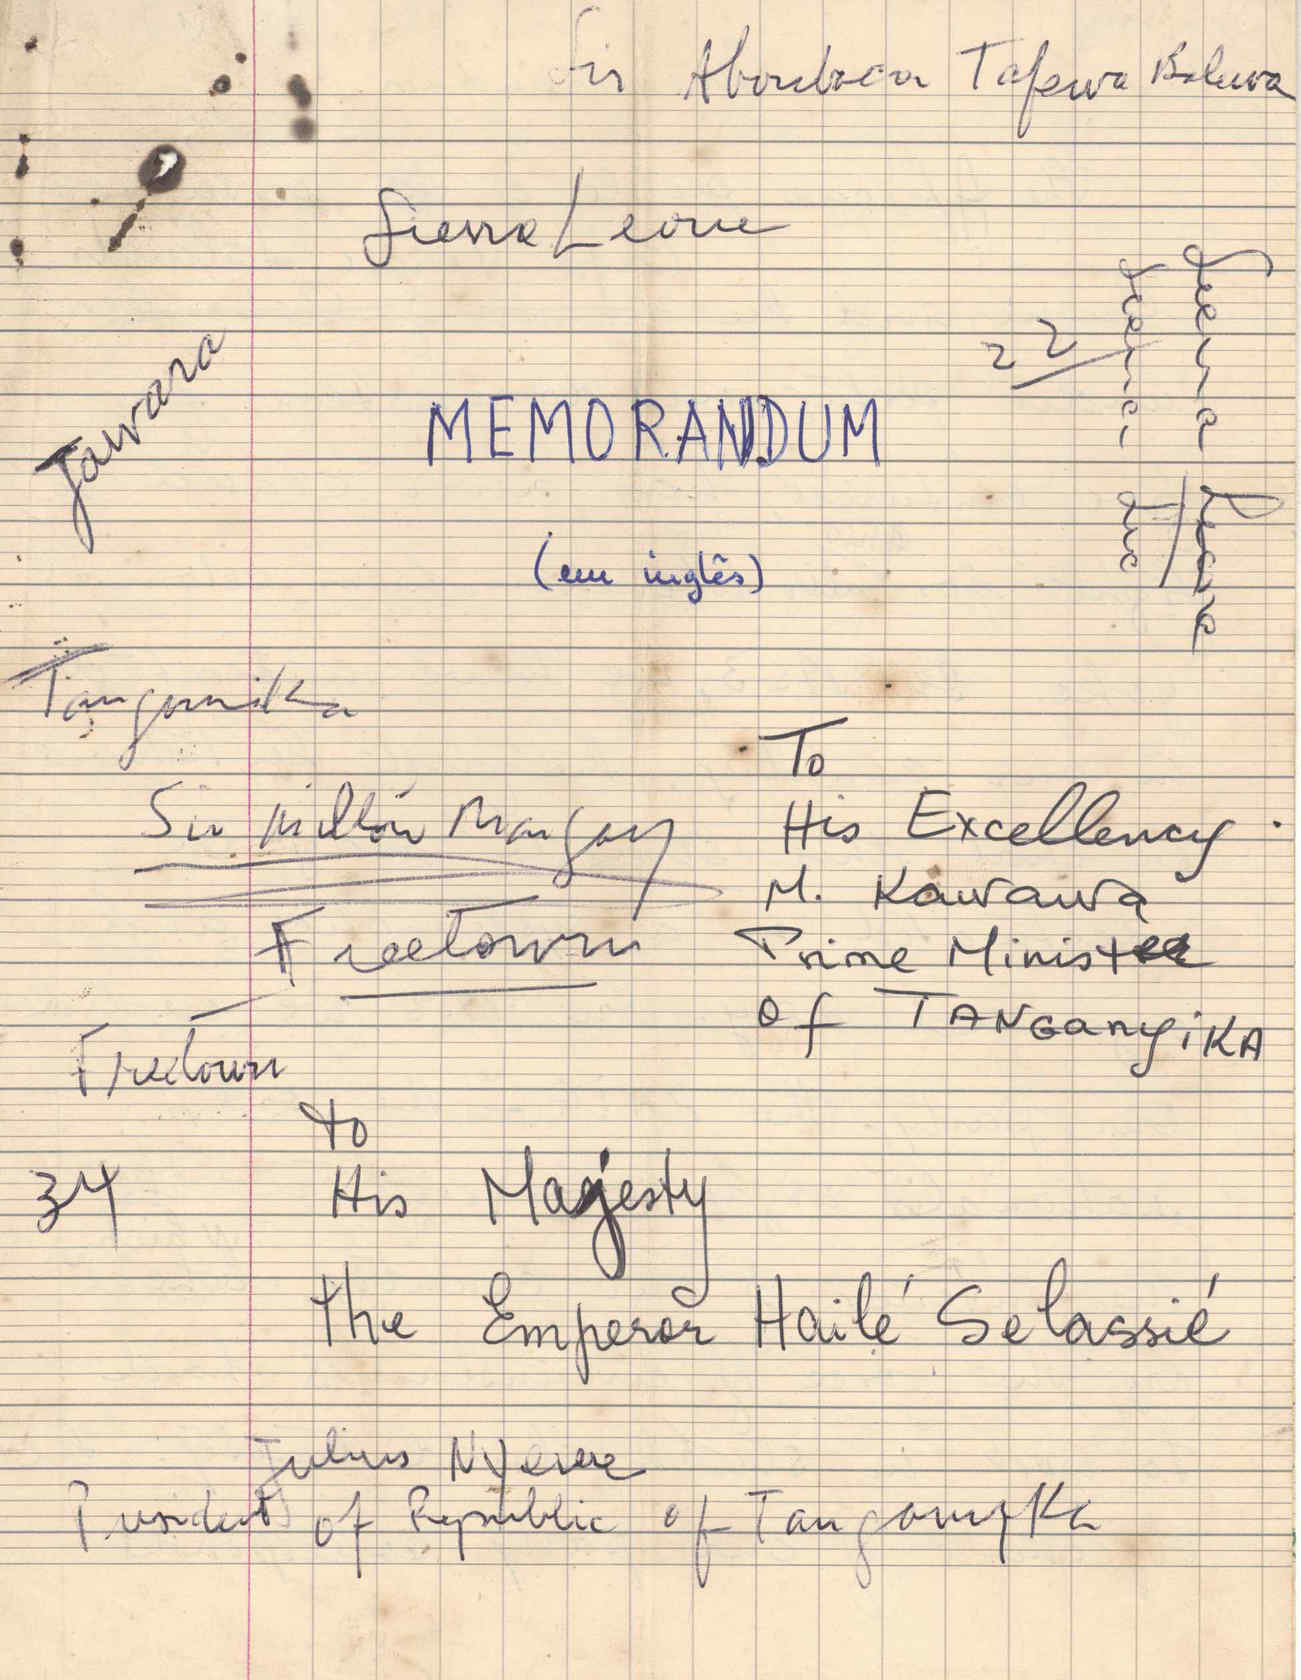 Sir Aboubacar Tafewa Baluwa
Sierra Leone
22
Jawara
MEMORANDUM
(em inglês)
Tanganika
To
Sir Milton Margay
His Excellency.
M. Kawawa
Freetown
Prime Minister
of TANGanyiKA
Freetown
to
34
His Magesty
the Emperor Hailé Selassié
Julius Nyerere
President of Republic of Tanganyka